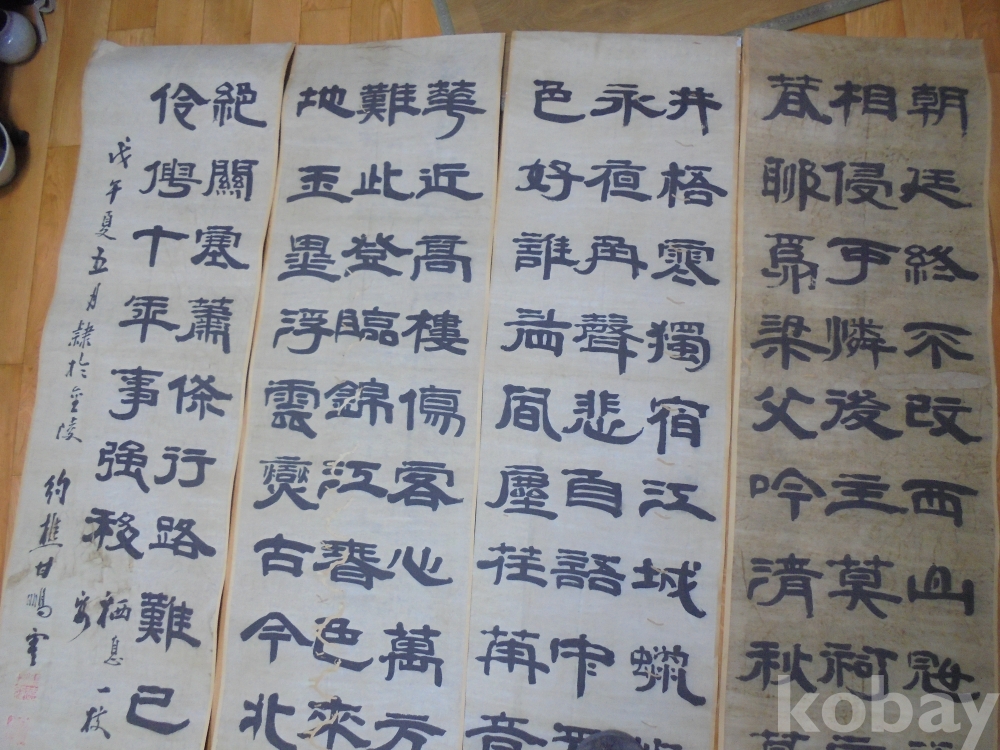 朝廷終不改西山冦
相侵可憐後主莫祠
暮聊為梁父吟清秋幕
井梧寒獨宿江城蠟
永夜角聲悲自語中天
色好誰看風塵荏苒音
華近高樓傷客心萬方
難此登臨錦江春色來
地玉壘浮雲變古今北
絕關塞蕭條行路難已
伶俜十年事強移栖息一枝
安
戊午夏五月隸於金陵
約樵甘鵬雲
kobay